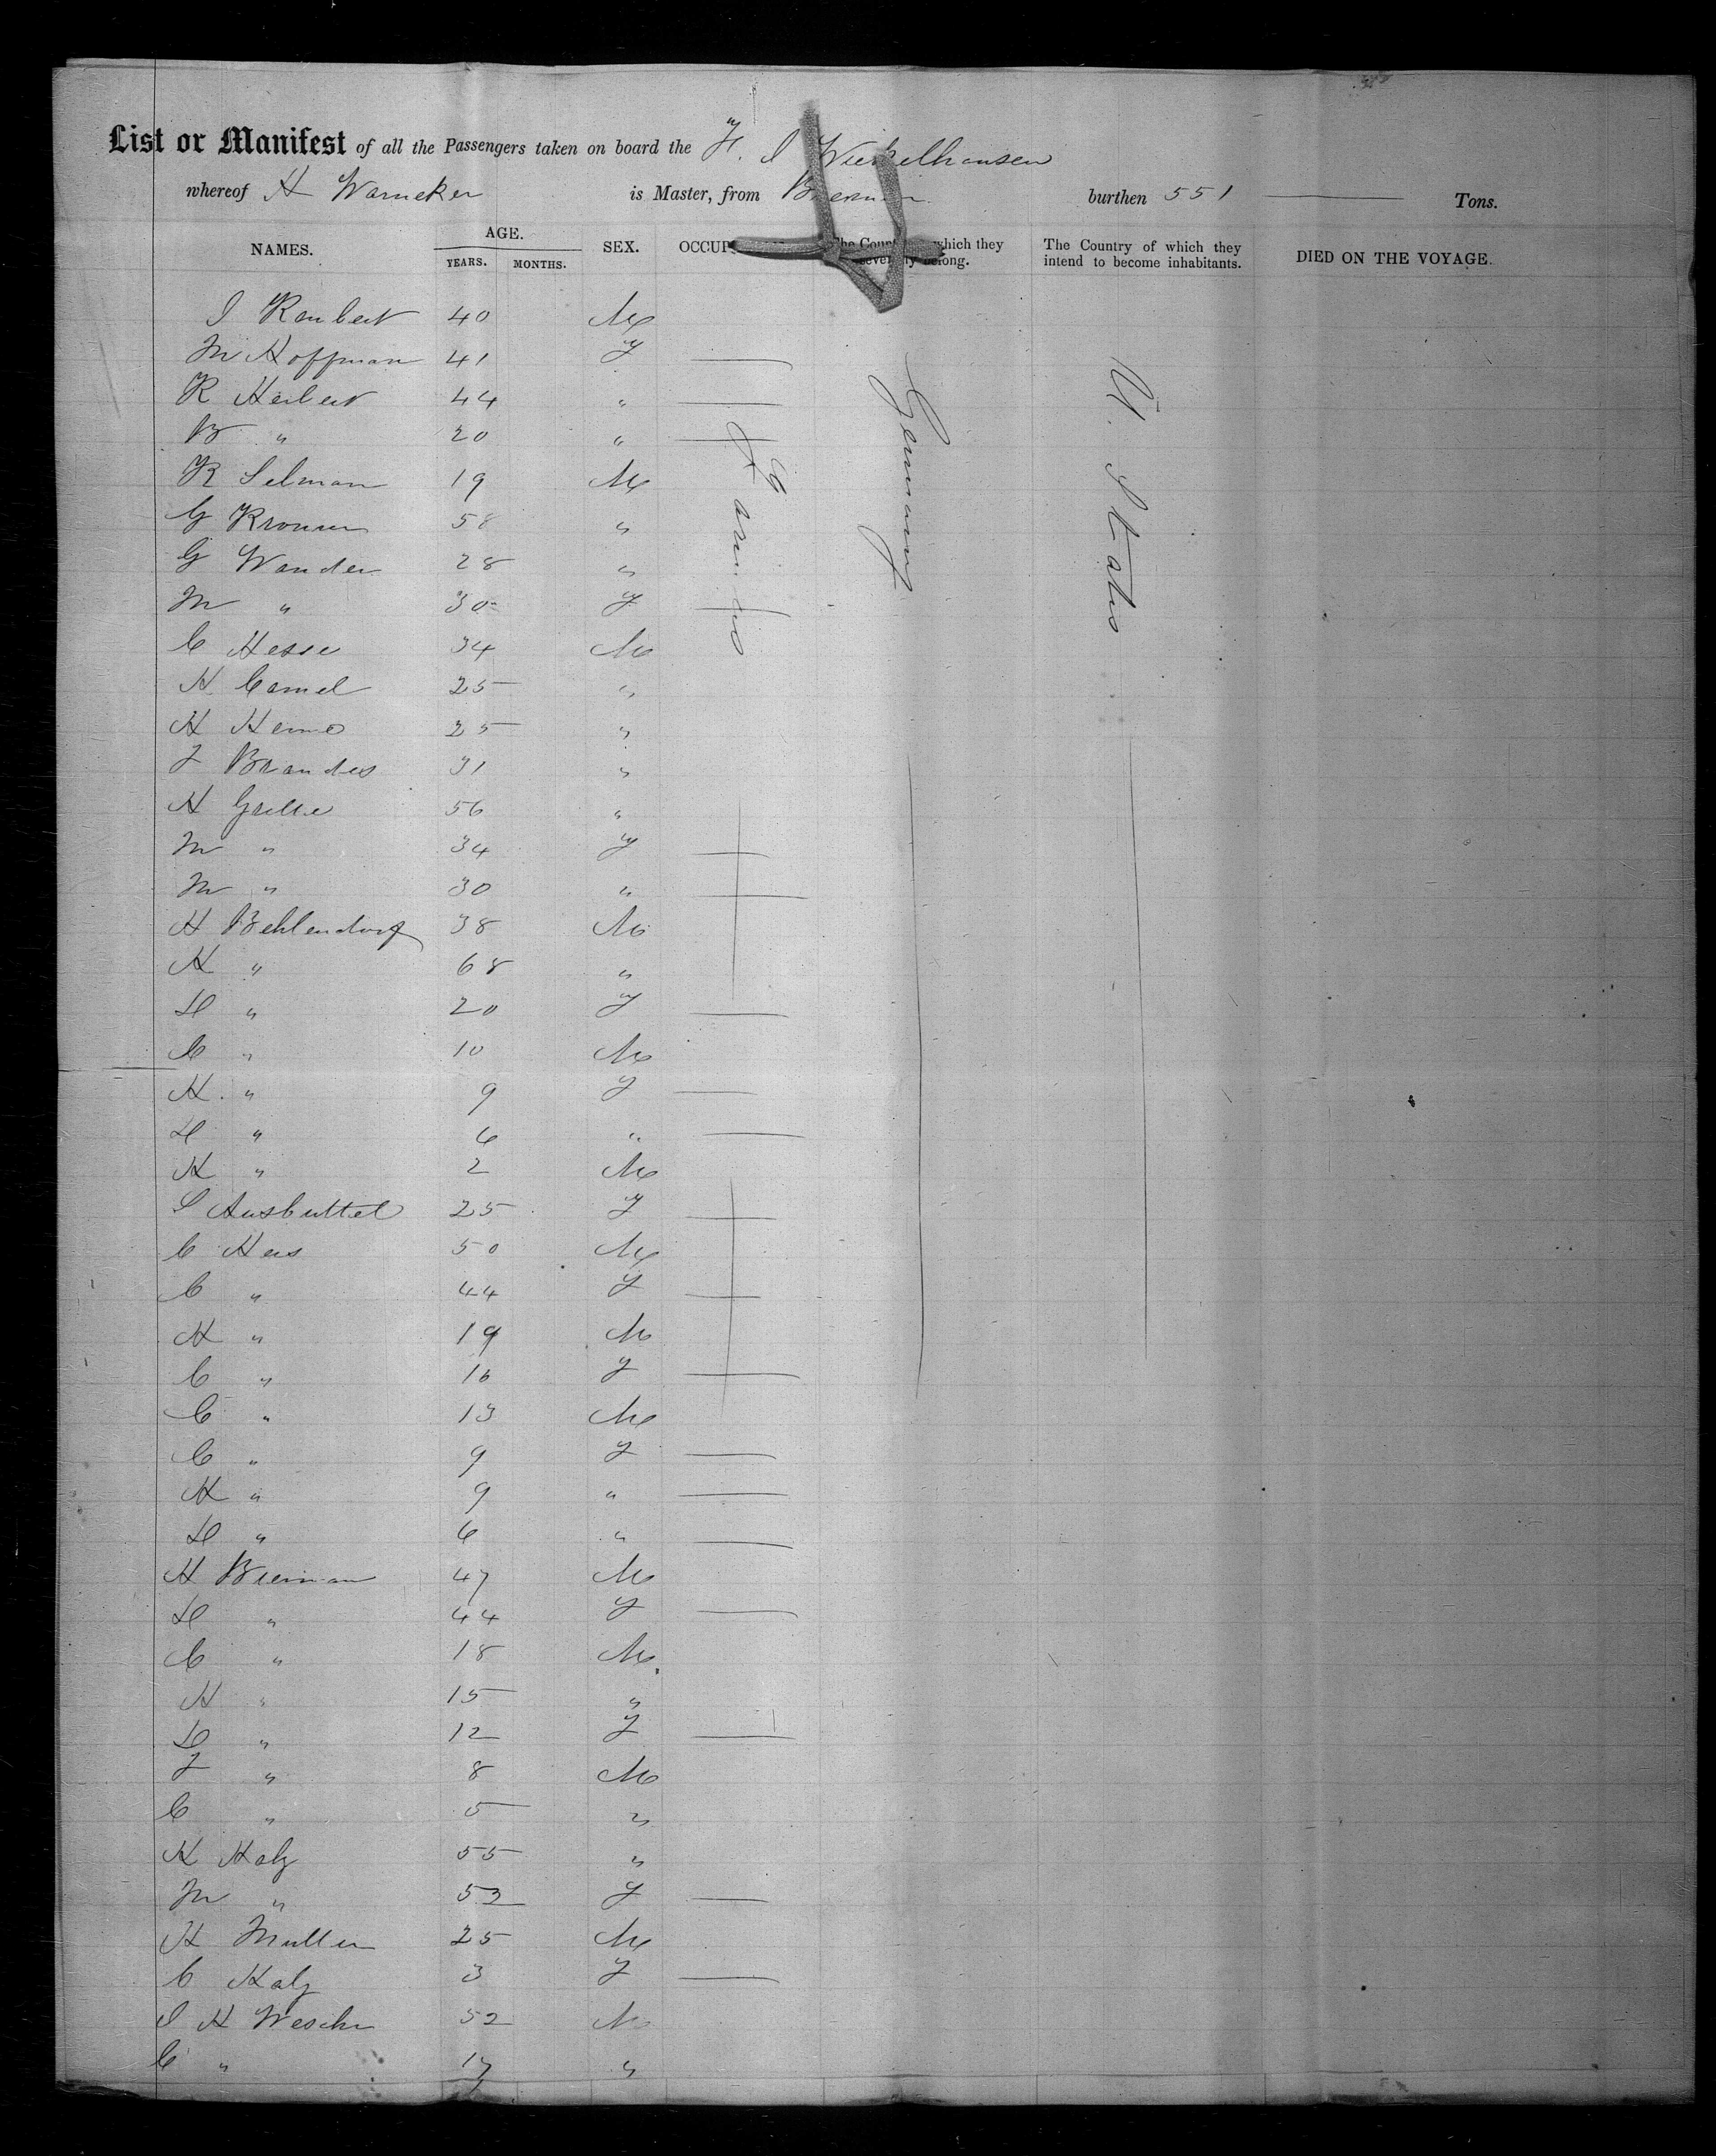 List or Manifest of all the Passengers taken on board the F. J Wichelhausen
whereof H Warneker is Master, from Bremen burthen 551 Tons.
NAMES. AGE. YEARS. MONTHS. SEX. OCCUP The Coun which they severally belong. The Country of which they intend to become inhabitants. DIED ON THE VOYAGE.
J 40 M
M Hoffman 41 F
R Herbert 44 "
B " 20 "
R Selman 19 M
G 58 "
G Wander 28 "
M " 30 F
C Hesse 34 M
H Camel 25 "
H 25 "
F Brandes 31 "
H Grille 56 "
M " 34 F
M " 30 "
H Behlendorf 38 M
H " 68 "
D " 20 F
C " 10 M
H " 9 F
D " 6 "
H " 2 M
S Ausbuttel 25 F
C Heis 50 M
C " 44 F
H " 19 M
C " 16 F
C " 13 M
C " 9 F
H " 9 "
D " 6 "
H Bierman 47 M
D " 44 F
C " 18 M
H " 15 "
D " 12 F
F " 8 M
C " 5 "
H Halz 55 "
M " 52 F
H Muller 25 M
C Halz 3 F
J H Wesche 52 M
C " 17 "
Farmers
Germany
U. States